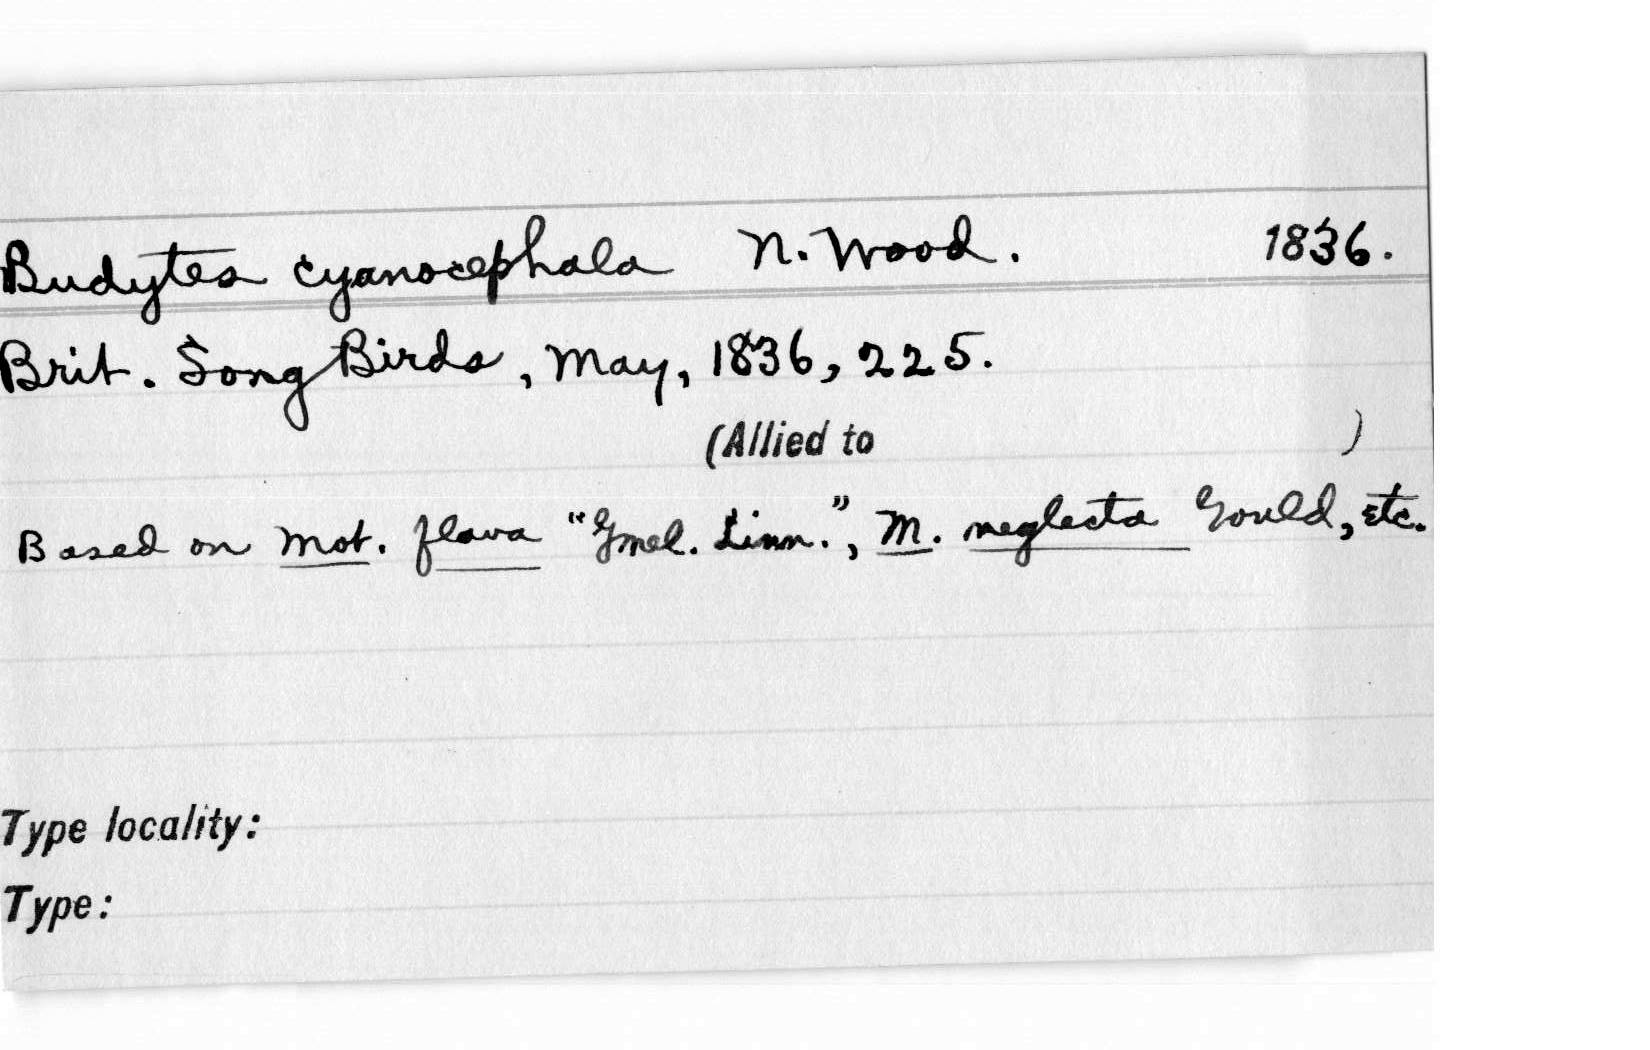 Budytes cyanocephala N. Wood. 1836.
Brit. Song Birds, May, 1836, 225.
(Allied to )
Based on Mot. flava "Gmel. Linn.", M. neglecta Gould, etc.
Type locality:
Type: